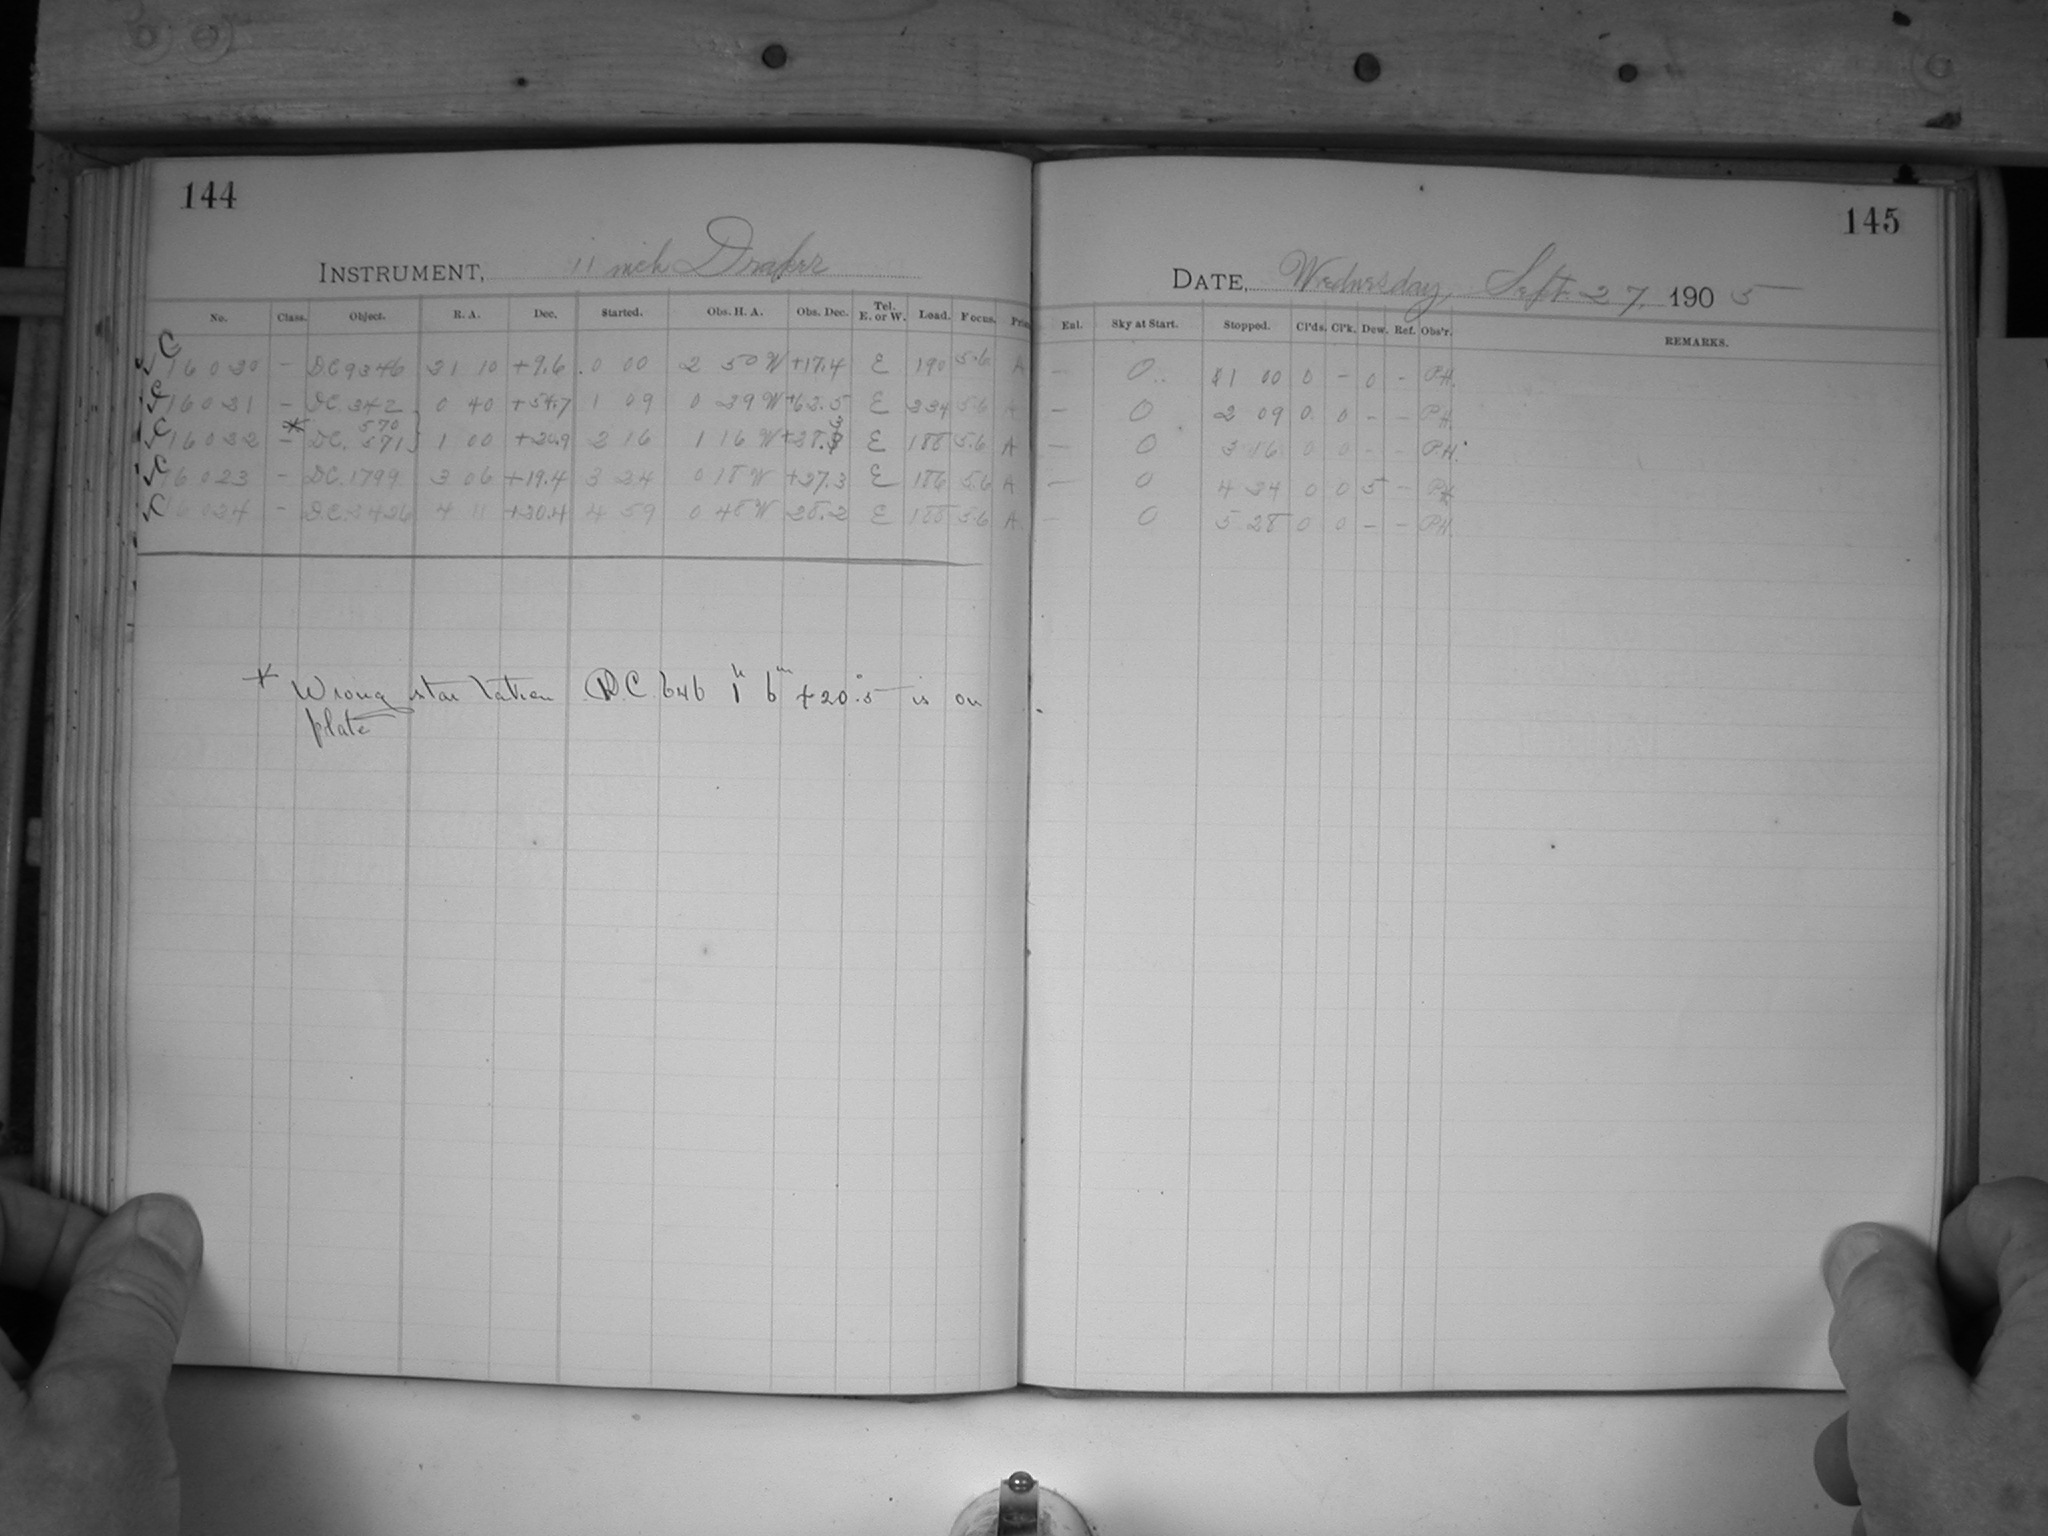 144
INSTRUMENT, 11 inch Draper
No. Class. Object. R. A. Dec. Started. Obs. H. A. Obs. Dec. Tel. E. or W. Load. Focus.
C 16020 - DC 9346 21 10 +9.6 0 00 2 50 W +17.4 E 190 5.6 A
C 16021 - DC. 342 0 40 +54.7 1 09 0 29 W +62.5 E 234 5.6 A
C 16022 * - DC. 570 571 } 1 00 +20.9 2 16 1 16 W E 188 5.6 A
C 16023 - DC. 1799 3 06 +19.4 3 24 0 18 W +27.3 E 186 5.6 A
C 16024 - 4 11 +20.4 4 59 0 48 W 28.2 E 188 5.6 A
* Wrong star taken D.C. 646 1h 6m +20°.5 is on
plate
145
DATE, Wednesday, Sept. 27, 1905
Enl. Sky at Start. Stopped. Cl'ds. Cl'k. Dew. Ref. Obs'r. REMARKS.
- 0 1 00 0 - 0 - P.H.
- 0 2 09 0 0 - - P.H.
- 0 3 16 0 0 - - P.H.
- 0 4 24 0 0 5 - P.H.
- 0 5 28 0 0 - - P.H.